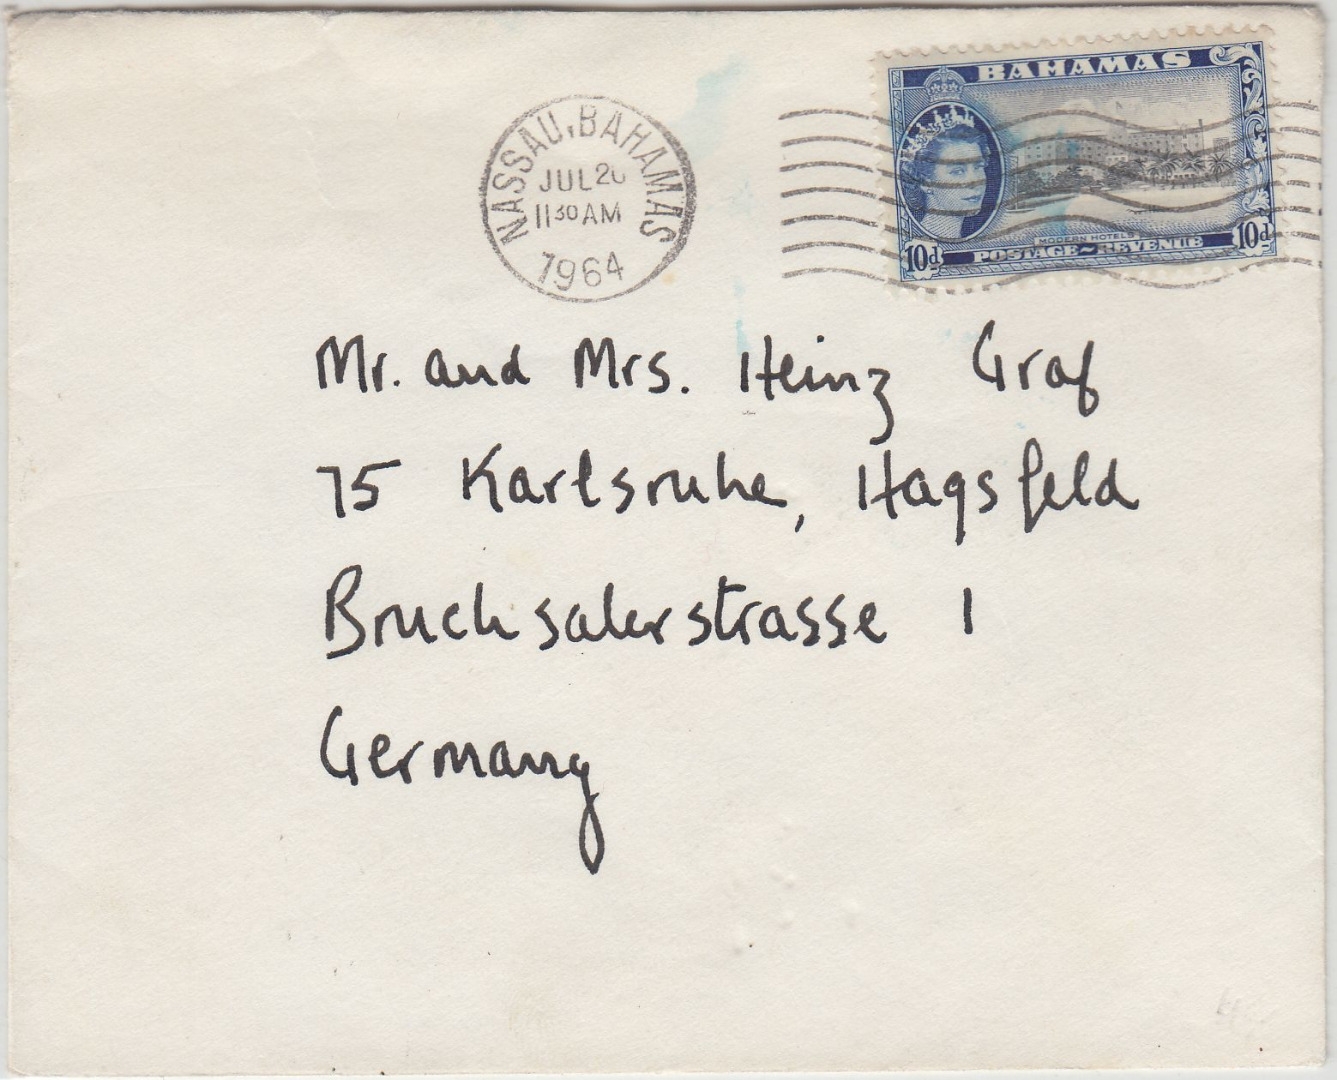 BAHAMAS
NASSAU, BAHAMAS
JUL 20
11 30 AM
1964
MODERN HOTELS
10d POSTAGE~REVENUE 10d
Mr. and Mrs. Heinz Graf
75 Karlsruhe, Hagsfeld
Bruchsalerstrasse 1
Germany